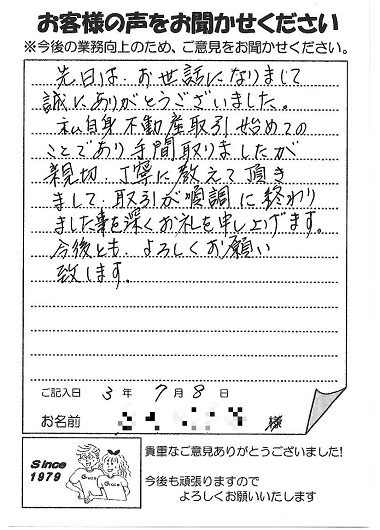 お客様の声をお聞かせください
※今後の業務向上のため、ご意見をお聞かせください。
先日は、お世話になりまして
誠にありがとうございました。
私自身不動産取引始めての
ことであり手間取りましたが
親切、丁寧に教えて頂き
まして、取引が順調に終わり
ました事を深くお礼を申し上げます。
今後とも、よろしくお願い
致します。
ご記入日 3年 7月 8日
お名前 様
Since
1979
Grace
Grace
貴重なご意見ありがとうございました!
今後も頑張りますので
よろしくお願いいたします